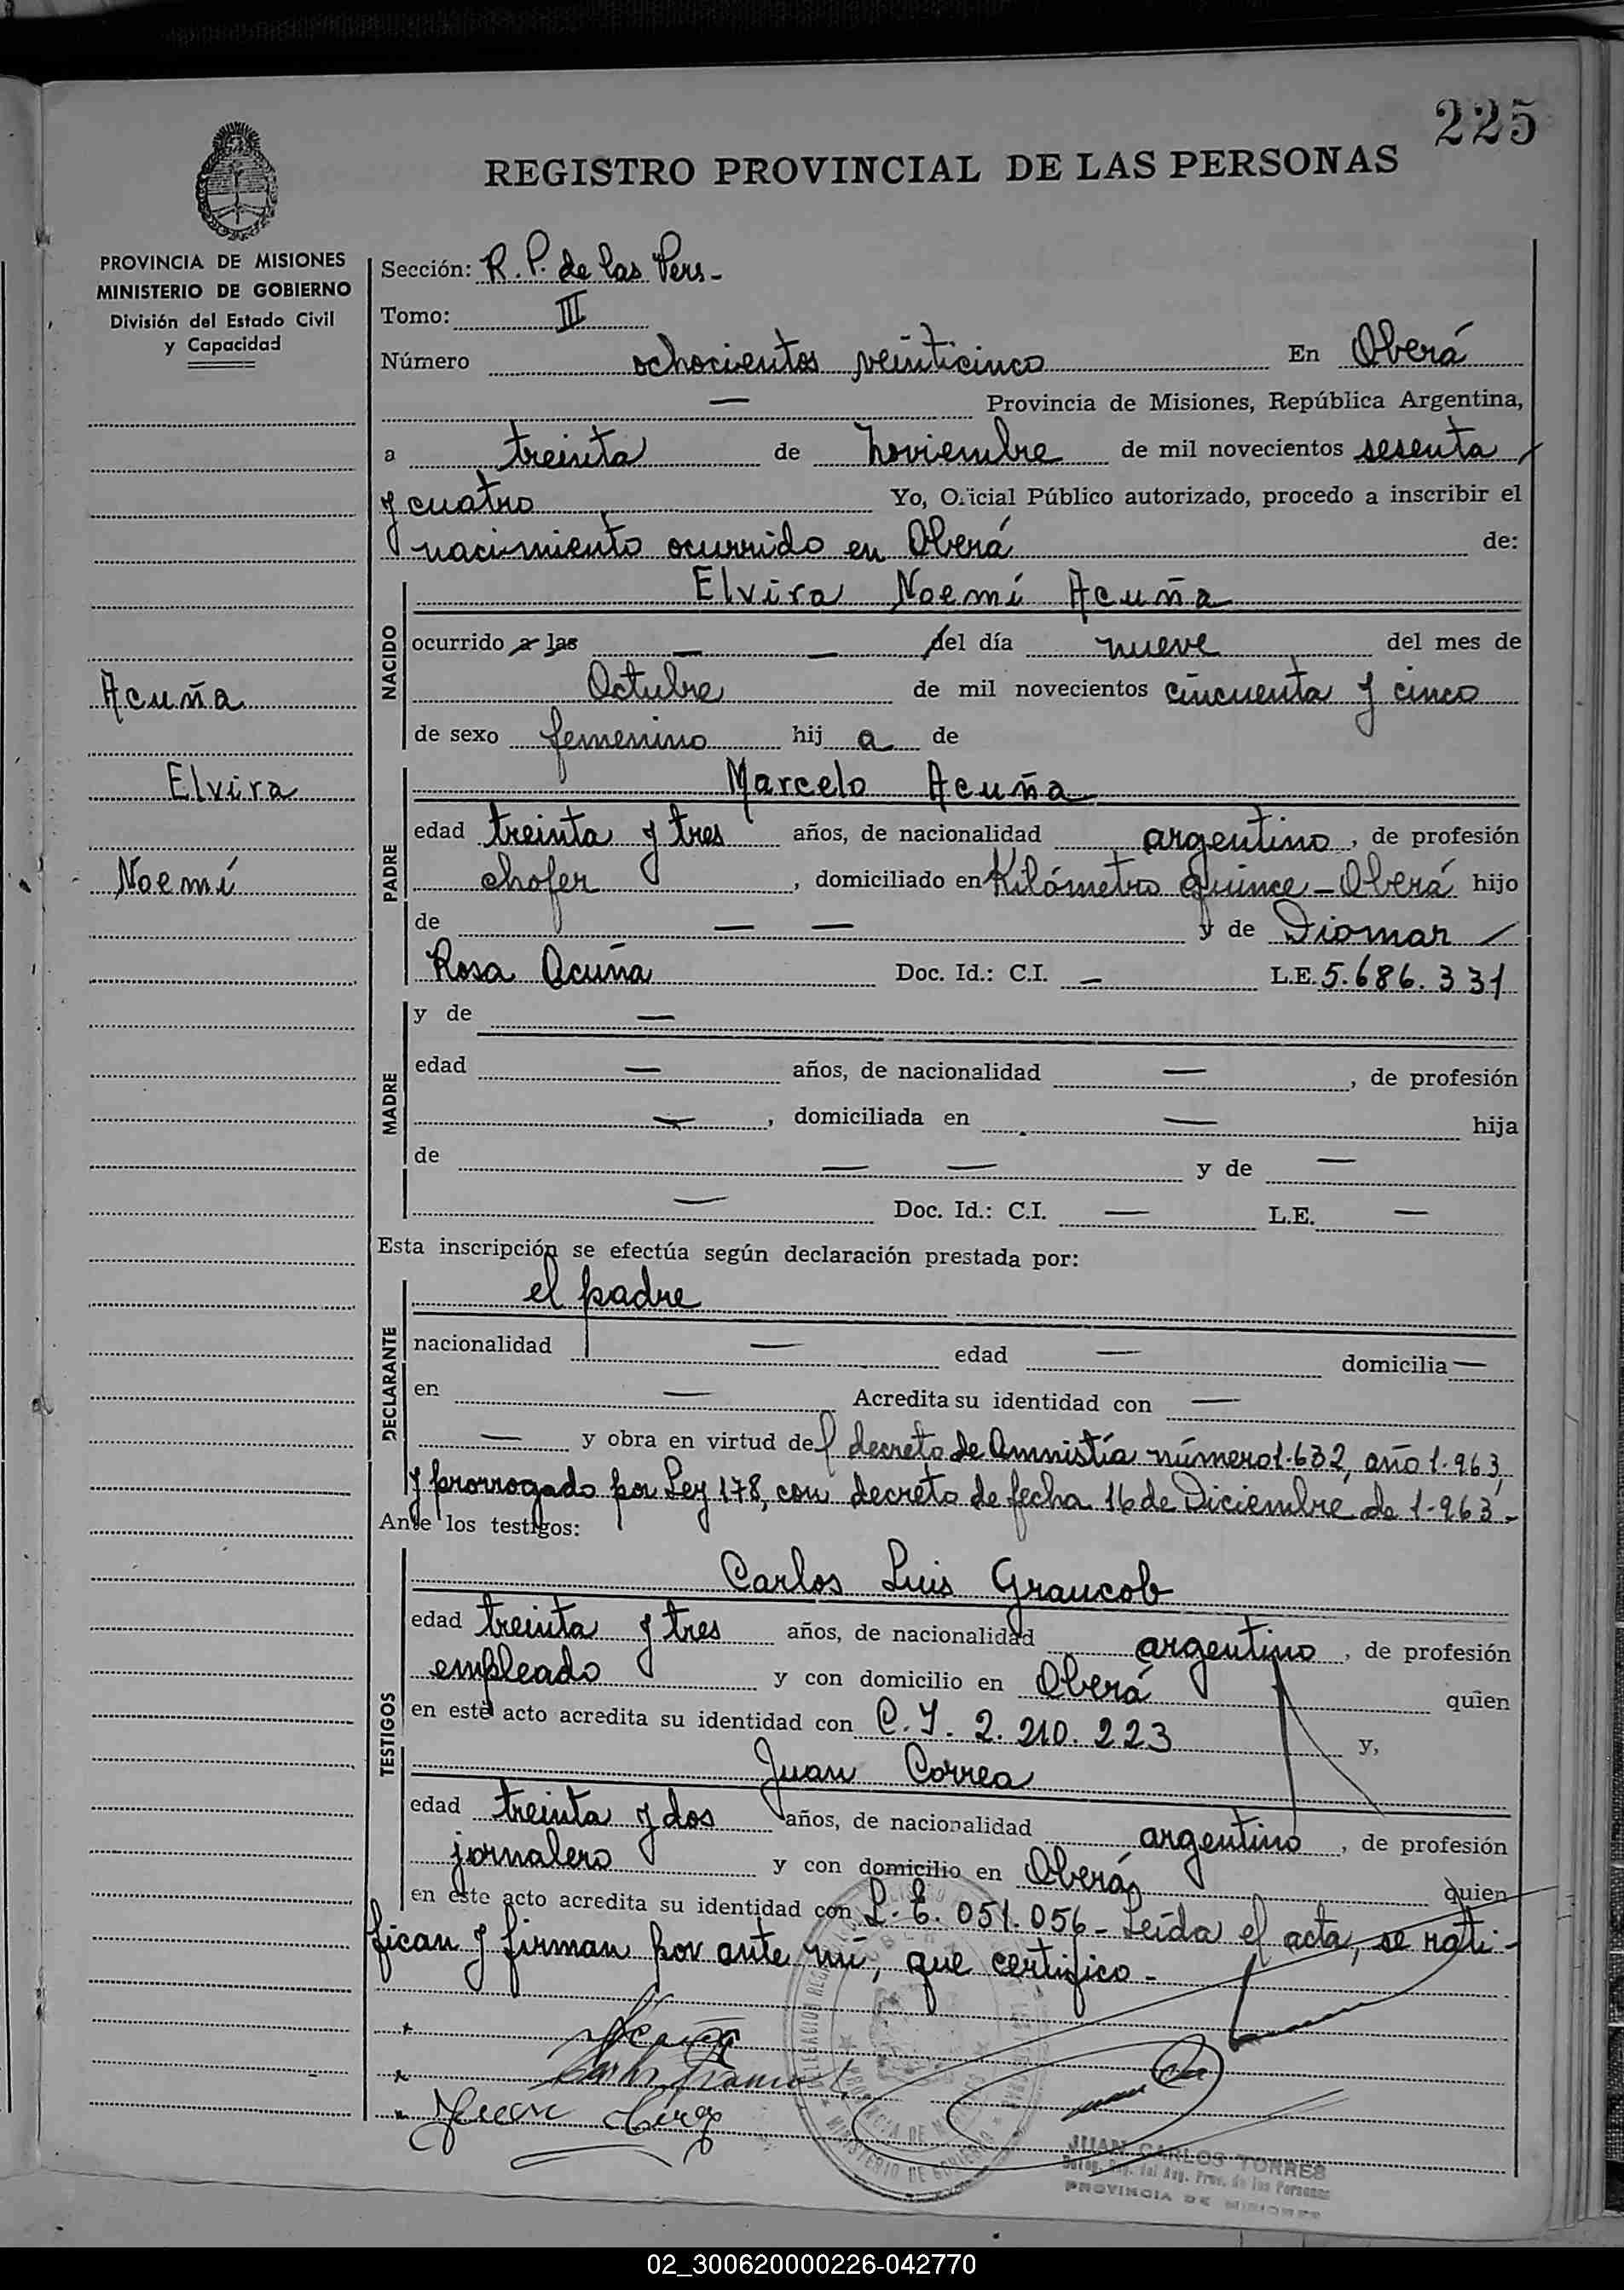 225
REGISTRO PROVINCIAL DE LAS PERSONAS
PROVINCIA DE MISIONES
MINISTERIO DE GOBIERNO
División del Estado Civil
y Capacidad
Acuña
Elvira
Noemí
Sección: R. P. de las Pers -
Tomo: III
Número ochocientos veinticinco En Oberá
— Provincia de Misiones, República Argentina,
a treinta de Noviembre de mil novecientos sesenta
y cuatro Yo, Oficial Público autorizado, procedo a inscribir el
nacimiento ocurrido en Oberá de:
NACIDO
Elvira Noemí Acuña
ocurrido a las — — del día nueve del mes de
Octubre de mil novecientos cincuenta y cinco
de sexo femenino hij a de
PADRE
Marcelo Acuña
edad treinta y tres años, de nacionalidad argentino, de profesión
chofer, domiciliado en Kilómetro quince - Oberá hijo
de — — y de Diomar
Rosa Acuña Doc. Id.: C.I. — L.E. 5.686.331
MADRE
y de —
edad — años, de nacionalidad —, de profesión
—, domiciliada en — hija
de — — y de —
— Doc. Id.: C.I. — L.E. —
Esta inscripción se efectúa según declaración prestada por:
DECLARANTE
el padre
nacionalidad — edad — domicilia —
en — Acredita su identidad con —
— y obra en virtud del decreto de Amnistía número 1.632, año 1.963,
y prorrogado por Ley 178, con decreto de fecha 16 de Diciembre de 1.963.-
Ante los testigos:
TESTIGOS
Carlos Luis Graucob
edad treinta y tres años, de nacionalidad argentino, de profesión
empleado y con domicilio en Oberá quien
en este acto acredita su identidad con C. I. 2. 210. 223 y,
Juan Correa
edad treinta y dos años, de nacionalidad argentino, de profesión
jornalero y con domicilio en Oberá quien
en este acto acredita su identidad con L. E. 051.056 - Leída el acta, se rati-
fican y firman por ante mí, que certifico -
JUAN CARLOS TORRES
PROVINCIA DE MISIONES
02_300620000226-042770